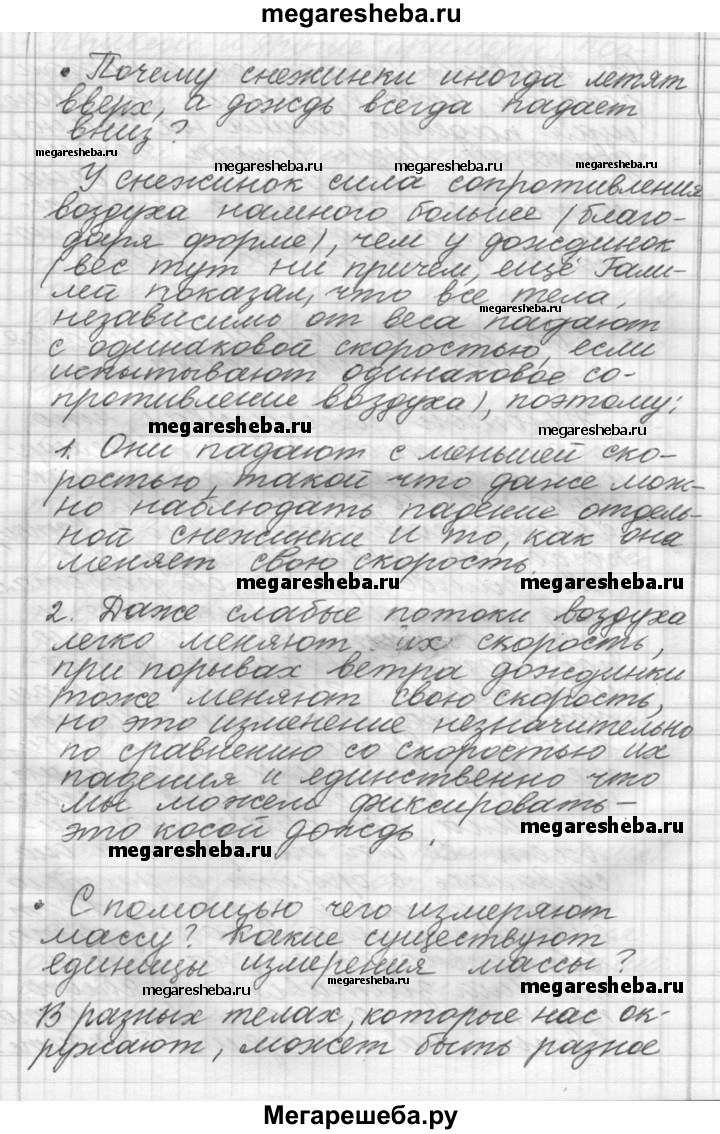 megaresheba.ru
• Почему снежинки иногда летят
вверх, а дождь всегда падает
вниз?
megaresheba.ru
megaresheba.ru
megaresheba.ru
megaresheba.ru
У снежинок сила сопротивления
воздуха намного больше (благо-
даря форме), чем у дождинок
(вес тут ни причем, ещё Гали-
лей показал, что все тела,
независимо от веса падают
megaresheba.ru
с одинаковой скоростью, если
испытывают одинаковое со-
противление воздуха), поэтому:
megaresheba.ru
megaresheba.ru
1. Они падают с меньшей ско-
ростью, такой что даже мож-
но наблюдать падение отдель-
ной снежинки и то, как она
меняет свою скорость.
megaresheba.ru
megaresheba.ru
2. Даже слабые потоки воздуха
легко меняют их скорость,
при порывах ветра дождинки
тоже меняют свою скорость,
но это изменение незначительно
по сравнению со скоростью их
падения и единственно что
мы можем фиксировать –
это косой дождь.
megaresheba.ru
megaresheba.ru
• С помощью чего измеряют
массу? Какие существуют
единицы измерения массы?
megaresheba.ru
megaresheba.ru
megaresheba.ru
В разных телах, которые нас ок-
ружают, может быть разное
Мегарешеба.ру